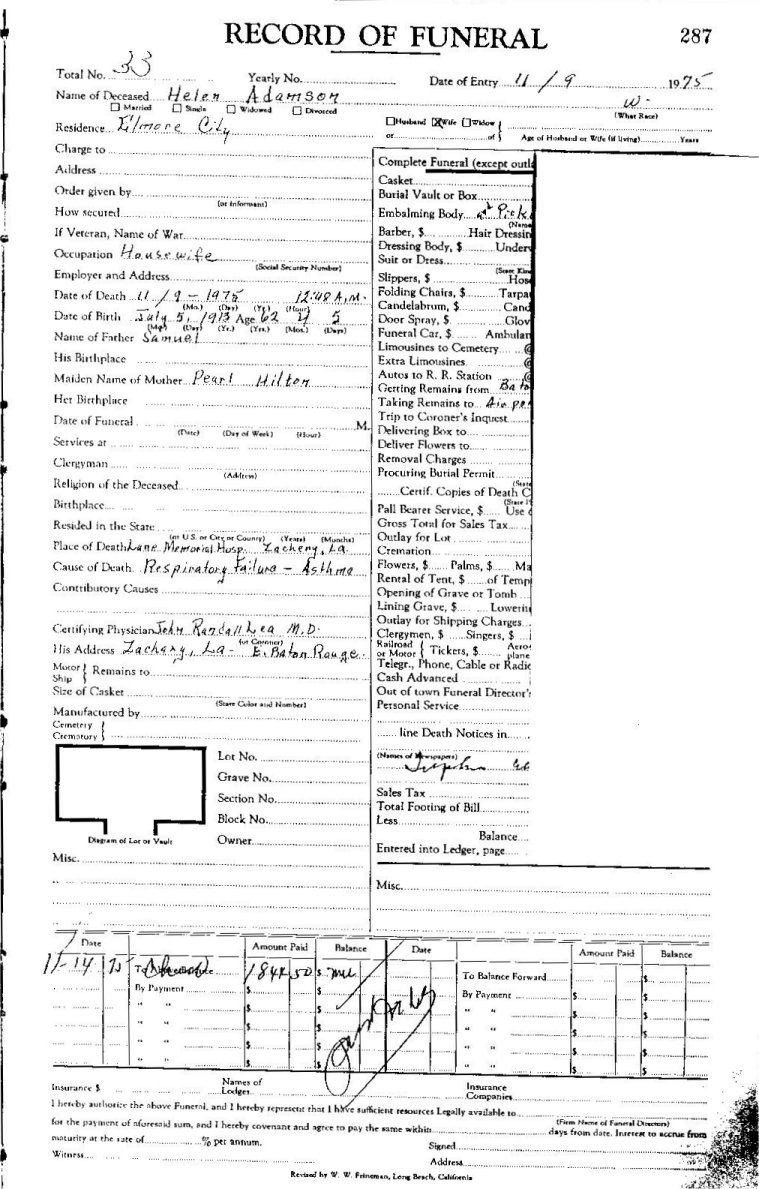 RECORD OF FUNERAL 287
Total No. 33 Yearly No. Date of Entry 11 / 9 1975
Name of Deceased Helen Adamson W.
☐ Married ☐ Single ☐ Widowed ☐ Divorced (What Race)
Residence Elmore City
☐ Husband ☒ Wife ☐ Widow
or of Age of Husband or Wife (if living) Years
Charge to
Address
Order given by
(or Informant)
How secured
If Veteran, Name of War
Occupation Housewife
(Social Security Number)
Employer and Address
Date of Death 11 / 9 - 1975 12:48 A.M.
(Mo.) (Day) (Yr.) (Hour)
Date of Birth July 5, 1913 Age 62 4 5
(Mo.) (Day) (Yr.) (Yrs.) (Mos.) (Days)
Name of Father Samuel
His Birthplace
Maiden Name of Mother Pearl Hilton
Her Birthplace
Date of Funeral M.
(Date) (Day of Week) (Hour)
Services at
Clergyman
(Address)
Religion of the Deceased
Birthplace
Resided in the State
(or U.S. or City or County) (Years) (Months)
Place of Death Lane Memorial Hosp. Zachery, La.
Cause of Death Respiratory failure - Asthma
Contributory Causes
Certifying Physician John Randall Lea M.D.
(or Coroner)
His Address Zachary, La - E. Baton Rouge.
Motor
Ship Remains to
Size of Casket
(State Color and Number)
Manufactured by
Cemetery
Crematory
Lot No.
Grave No.
Section No.
Block No.
Diagram of Lot or Vault Owner
Misc.
Complete Funeral (except outla
Casket
Burial Vault or Box
Embalming Body
(Name
Barber, $ Hair Dressin
Dressing Body, $ Underv
Suit or Dress
(State Kind
Slippers, $ Hose
Folding Chairs, $ Tarpau
Candelabrum, $ Cand
Door Spray, $ Glov
Funeral Car, $ Ambulan
Limousines to Cemetery @
Extra Limousines @
Autos to R. R. Station @
Getting Remains from Bato
Taking Remains to Air por
Trip to Coroner's Inquest
Delivering Box to
Deliver Flowers to
Removal Charges
Procuring Burial Permit
(State
Certif. Copies of Death C
(State If
Pall Bearer Service, $ Use o
Gross Total for Sales Tax
Outlay for Lot
Cremation
Flowers, $ Palms, $ Ma
Rental of Tent, $ of Temp
Opening of Grave or Tomb
Lining Grave, $ Lowerin
Outlay for Shipping Charges
Clergymen, $ Singers, $
Railroad Aero-
or Motor Tickets, $ plane
Telegr., Phone, Cable or Radio
Cash Advanced
Out of town Funeral Director's
Personal Service
line Death Notices in
(Names of Newspapers)
Sales Tax
Total Footing of Bill
Less
Balance
Entered into Ledger, page
Misc.
Date Amount Paid Balance Date Amount Paid Balance
11-14 75 To 1844 50 $ To Balance Forward $
By Payment $ $ By Payment $ $
" " $ $ " " $ $
" " $ $ " " $ $
" " $ $ " " $ $
" " $ $ " " $ $
Insurance $ Names of Lodges Insurance Companies
I hereby authorize the above Funeral, and I hereby represent that I have sufficient resources Legally available to
(Firm Name of Funeral Directors)
for the payment of aforesaid sum, and I hereby covenant and agree to pay the same within days from date. Interest to accrue from
maturity at the rate of % per annum. Signed
Witness Address
Revised by W. W. Feineman, Long Beach, California